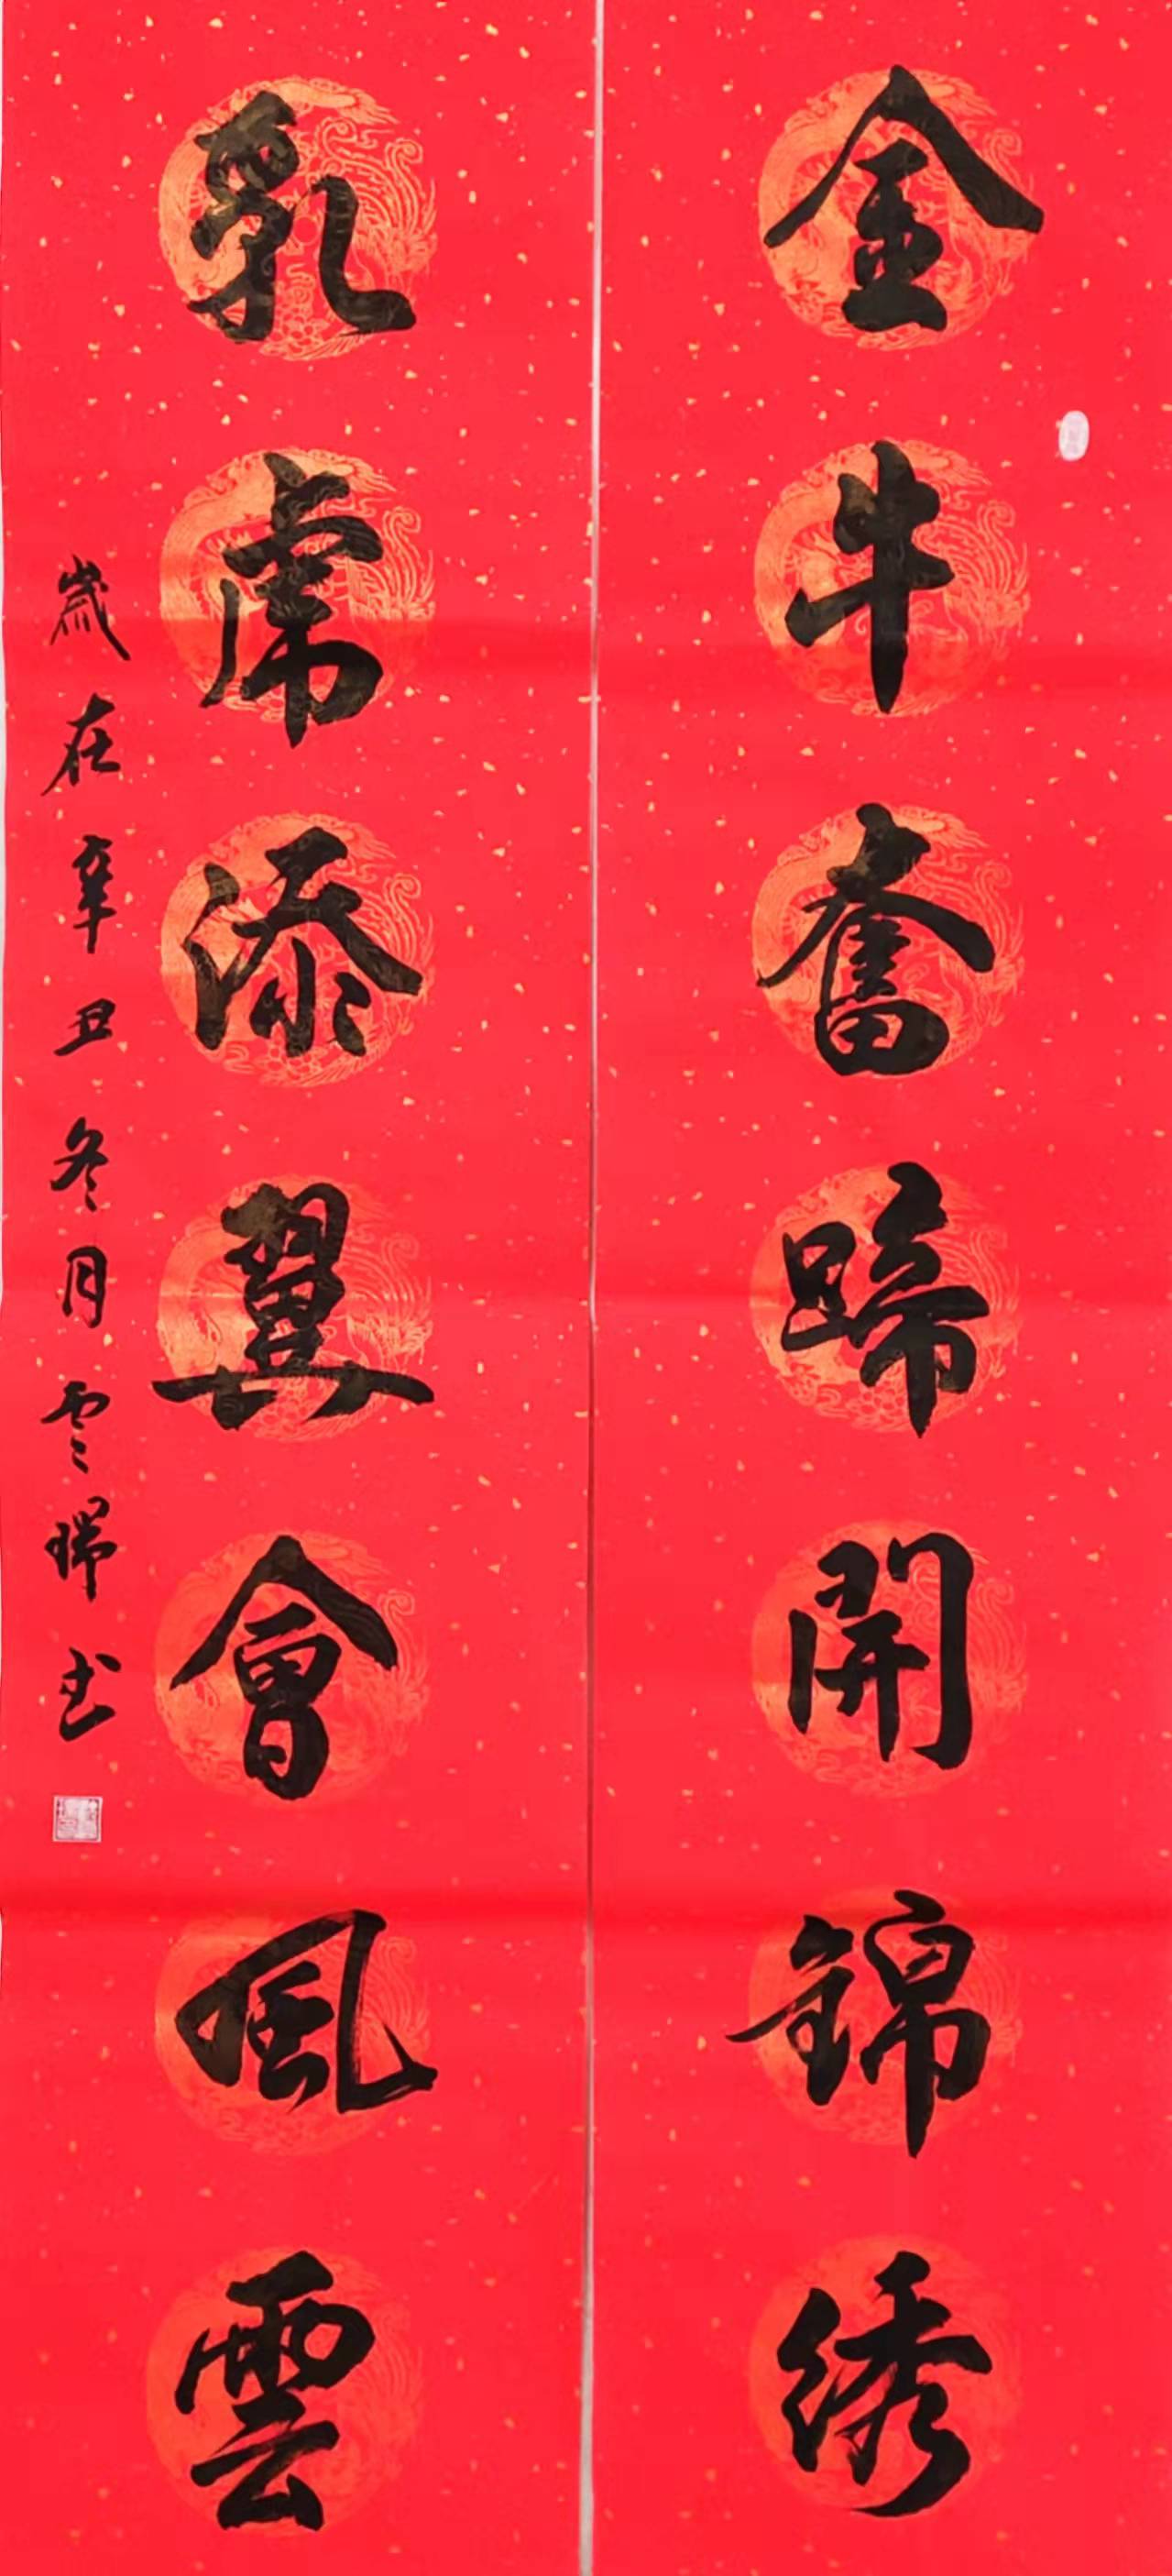 金牛奮蹄開錦绣
乳虎添翼會風雲
歲在辛丑冬月雲瑞书